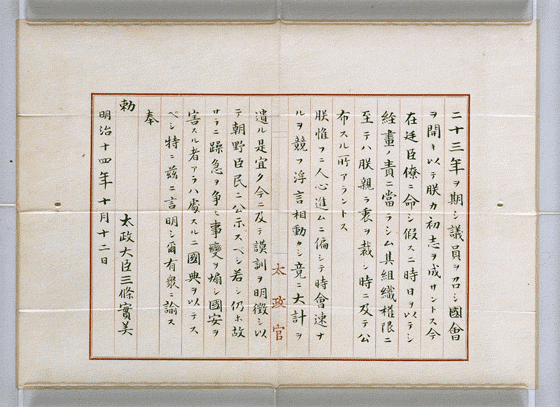 二十三年ヲ期シ議員ヲ召シ國會
ヲ開キ以テ朕カ初志ヲ成サントス今
在廷臣僚ニ命シ假スニ時日ヲ以テシ
經畫ノ責ニ當ラシム其組織權限ニ
至テハ朕親ラ衷ヲ裁シ時ニ及テ公
布スル所アラントス
朕惟フニ人心進ムニ偏シテ時會速ナ
ルヲ競フ浮言相動カシ竟ニ大計ヲ
太政官
遺ル是宜ク今ニ及テ謨訓ヲ明徴シ以
テ朝野臣民ニ公示スヘシ若シ仍ホ故
サラニ躁急ヲ爭ヒ事變ヲ煽シ國安ヲ
害スル者アラハ處スルニ國典ヲ以テス
ヘシ特ニ茲ニ言明シ爾有衆ニ諭ス
奉
勅 太政大臣三條實美
明治十四年十月十二日